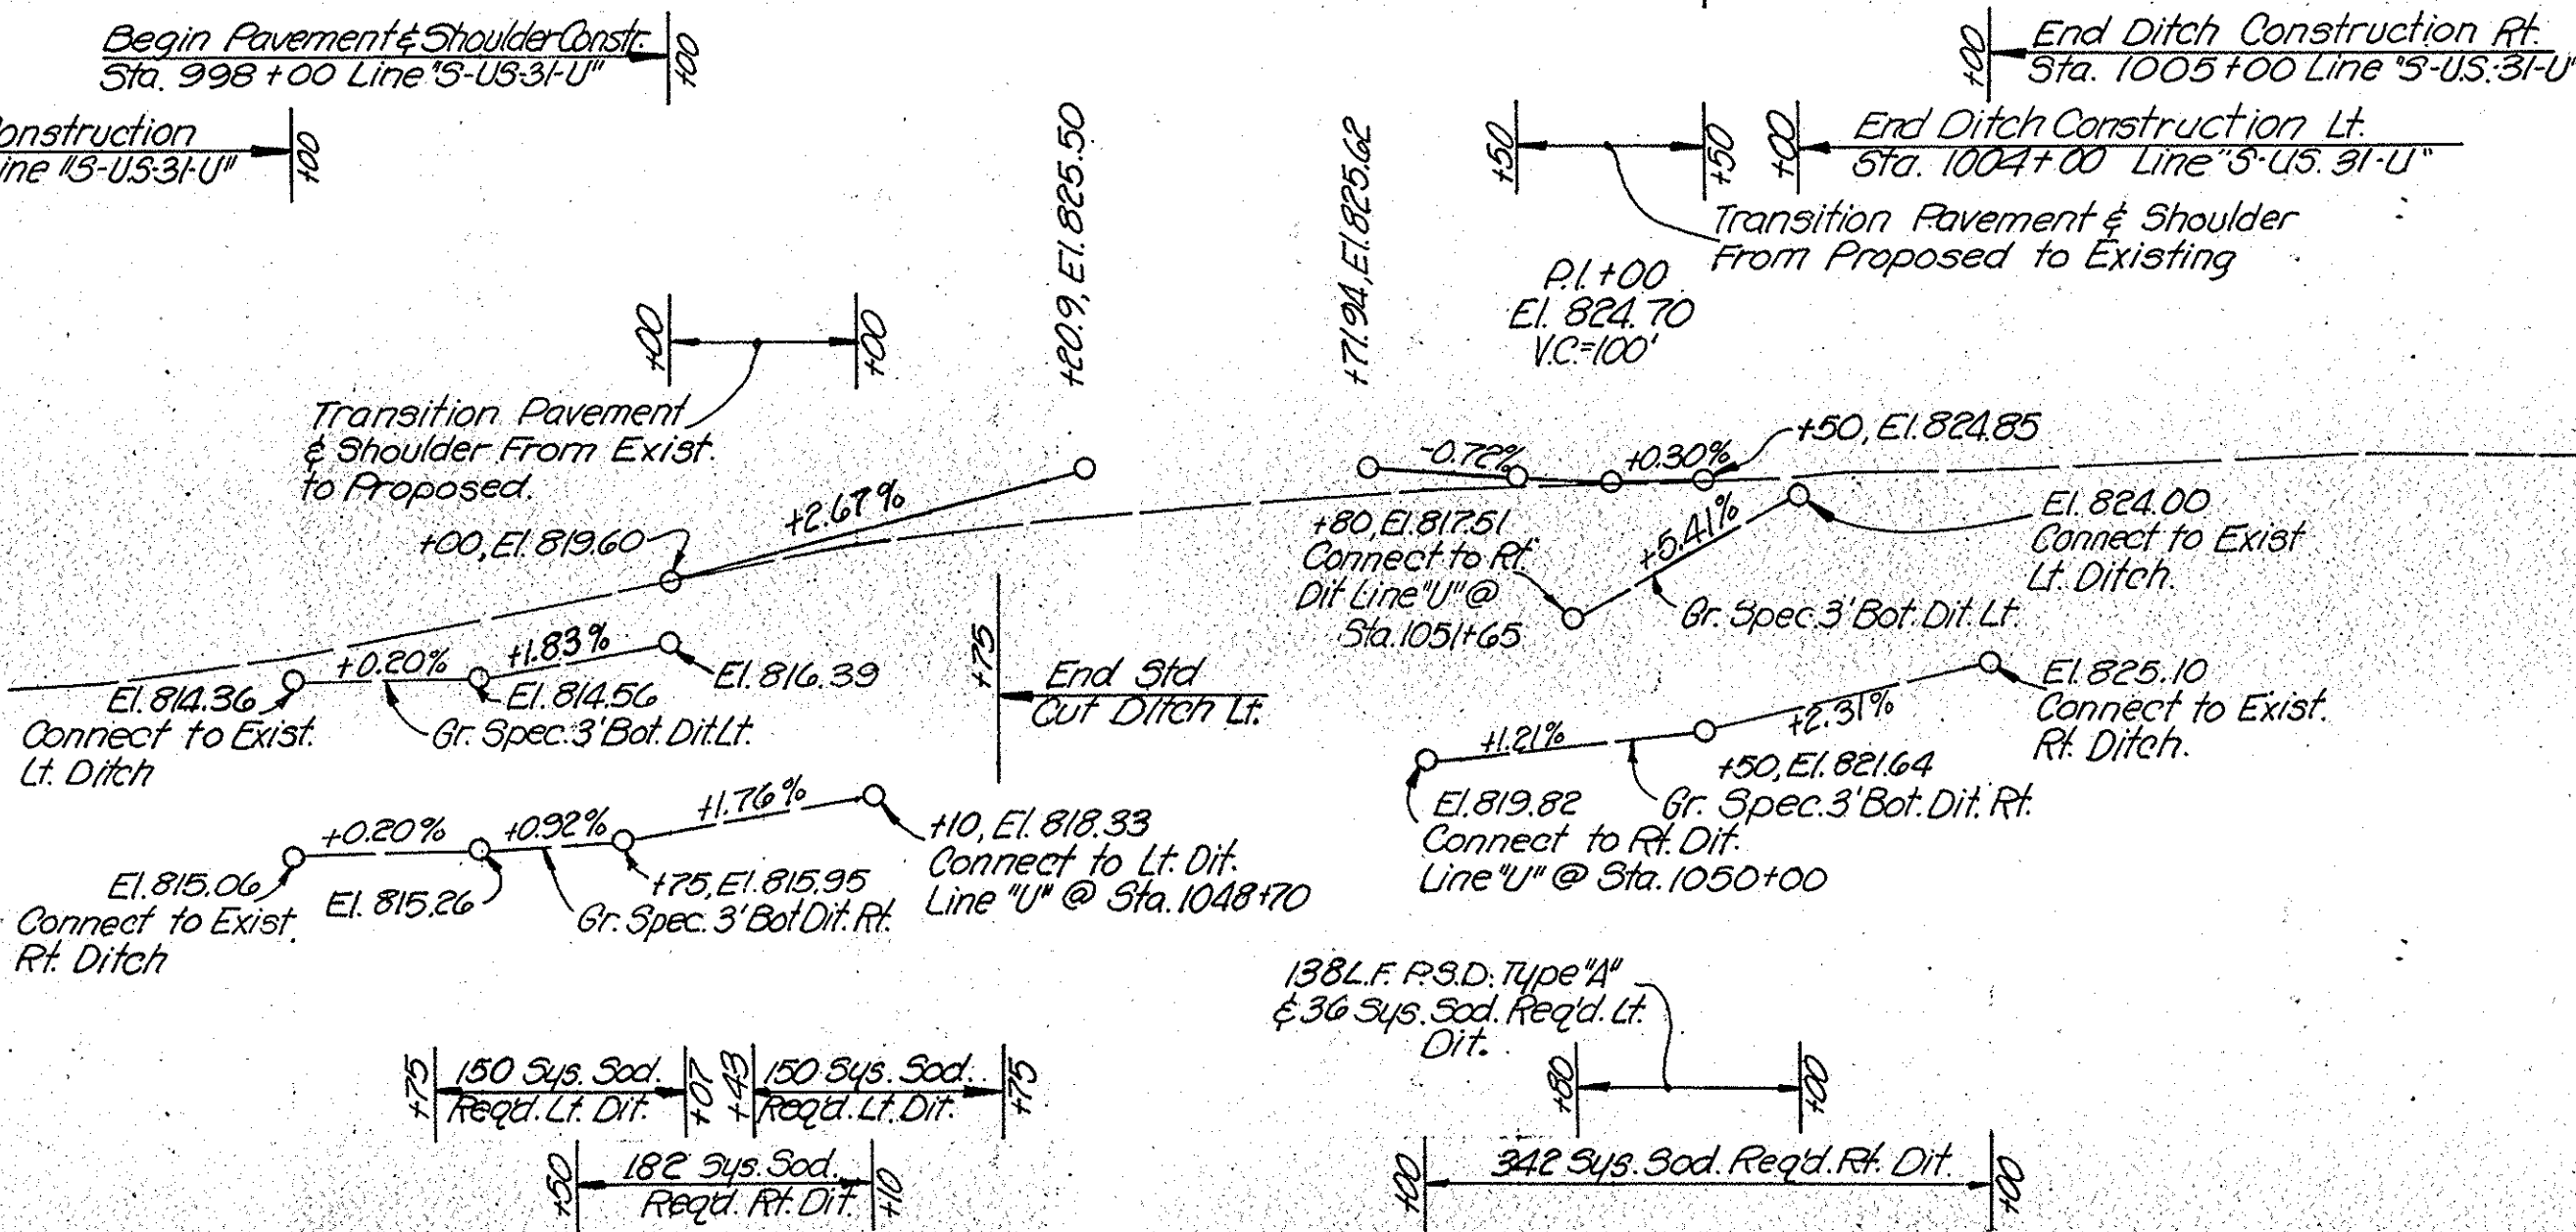 Begin Pavement & Shoulder Constr.
Sta. 998+00 Line "S-US-31-U"
+00
onstruction
ine "S-US-31-U"
+00
+20.9, El. 825.50
+71.94, El. 825.62
+00
End Ditch Construction Rt.
Sta. 1005+00 Line "S-U.S.-31-U"
+50
+50
+00
End Ditch Construction Lt.
Sta. 1004+00 Line "S-US. 31-U"
Transition Pavement & Shoulder
From Proposed to Existing
P.I. +00
El. 824.70
V.C.=100'
+00
+00
Transition Pavement
& Shoulder From Exist.
to Proposed.
+00, El. 819.60
+2.67%
-0.72%
+0.30%
+50, El. 824.85
+80, El. 817.51
Connect to Rt.
Dit Line "U" @
Sta. 1051+65
+5.41%
El. 824.00
Connect to Exist
Lt. Ditch.
Gr. Spec. 3' Bot. Dit. Lt.
+0.20%
+1.83%
El. 816.39
El. 814.36
Connect to Exist.
Lt. Ditch
El. 814.56
Gr. Spec. 3' Bot. Dit. Lt.
+75
End Std
Cut Ditch Lt.
+1.21%
+2.31%
El. 825.10
Connect to Exist.
Rt. Ditch.
+50, El. 821.64
Gr. Spec. 3' Bot. Dit. Rt.
El. 819.82
Connect to Rt. Dit.
Line "U" @ Sta. 1050+00
+0.20%
+0.92%
+1.76%
+10, El. 818.33
Connect to Lt. Dit.
Line "U" @ Sta. 1048+70
El. 815.06
Connect to Exist.
Rt. Ditch
El. 815.26
+75, El. 815.95
Gr. Spec. 3' Bot Dit. Rt.
138 L.F. P.S.D. Type "A"
& 36 Sys. Sod. Req'd. Lt.
Dit.
+75
150 Sys. Sod.
Req'd. Lt. Dit.
+07
+43
150 Sys. Sod.
Req'd. Lt. Dit.
+75
+80
+00
+50
182 Sys. Sod.
Req'd. Rt. Dit.
+10
+00
342 Sys. Sod. Req'd. Rt. Dit.
+00